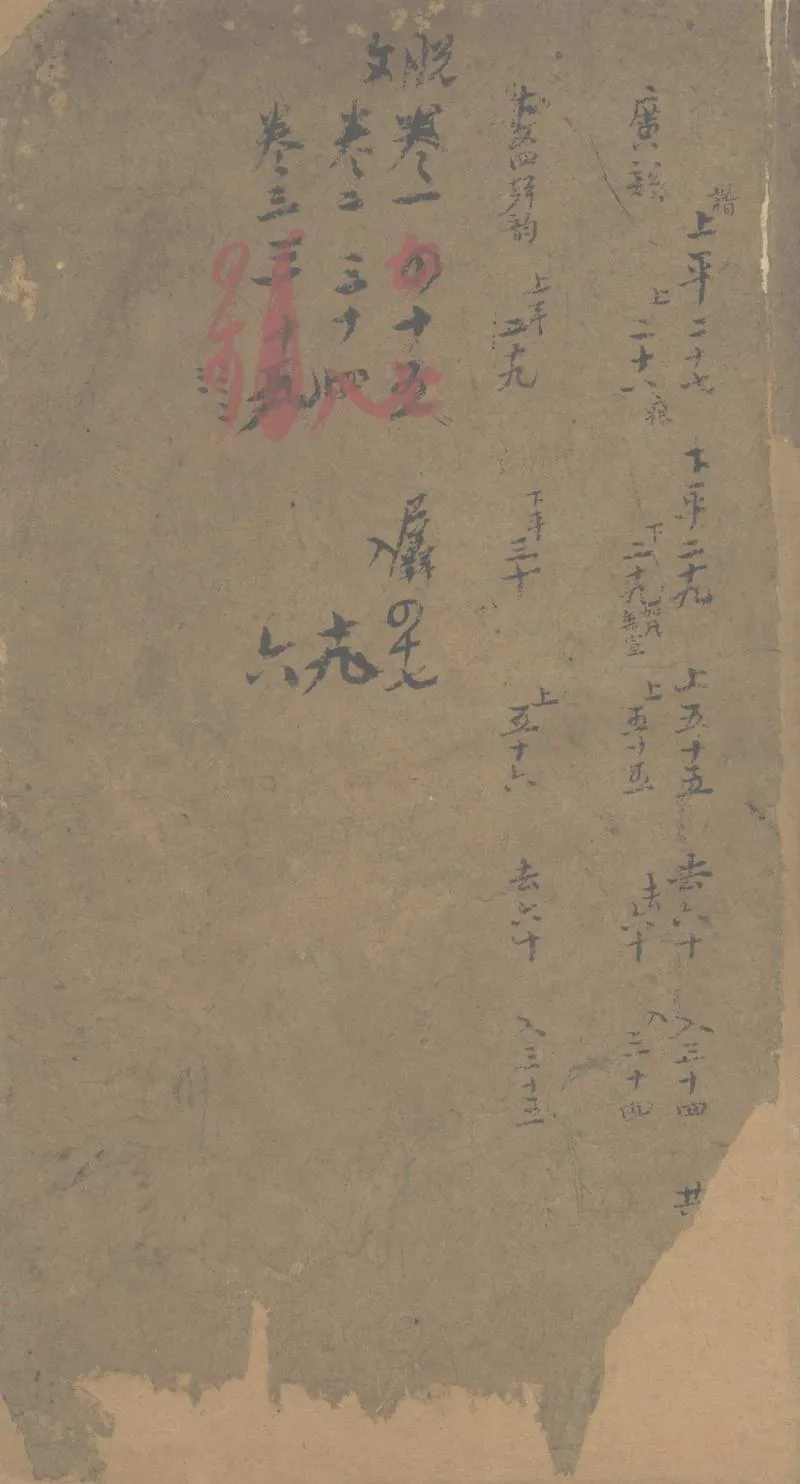 譜 上平二十七 下平二十九 上五十五 去六十 入三十四 共
廣韻 上二十六 痕 下二十九 無宣 上五十五 去六十 入三十四
古文四聲韵 上平二十九 下平三十 上五十六 去六十 入三十五
脫文
卷一 四十五
卷二 三十四
卷三 三十五
入 四十七
十九
六